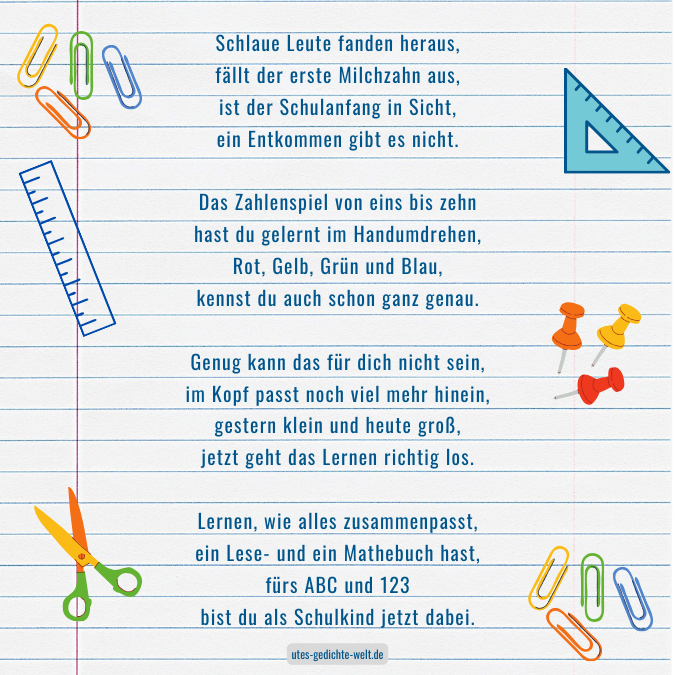 Schlaue Leute fanden heraus,
fällt der erste Milchzahn aus,
ist der Schulanfang in Sicht,
ein Entkommen gibt es nicht.
Das Zahlenspiel von eins bis zehn
hast du gelernt im Handumdrehen,
Rot, Gelb, Grün und Blau,
kennst du auch schon ganz genau.
Genug kann das für dich nicht sein,
im Kopf passt noch viel mehr hinein,
gestern klein und heute groß,
jetzt geht das Lernen richtig los.
Lernen, wie alles zusammenpasst,
ein Lese- und ein Mathebuch hast,
fürs ABC und 123
bist du als Schulkind jetzt dabei.
utes-gedichte-welt.de